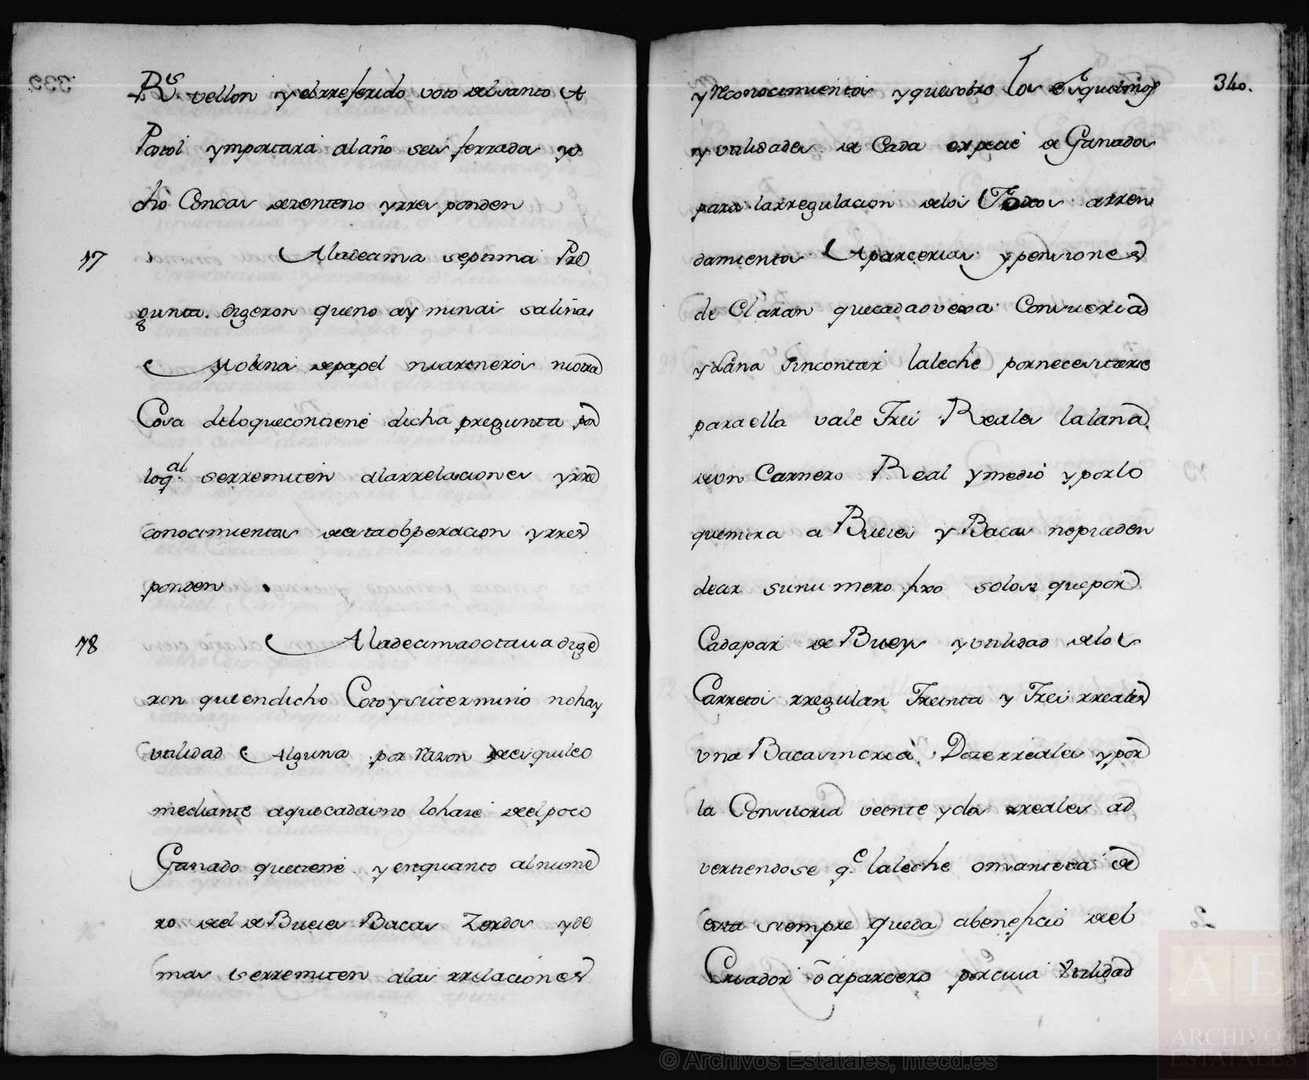 Rs vellon y el rreferido voto del santo A
Postol ymportara al año seis ferrados y o
cho Concas de zenteno y rres ponden
17 A la decima septima Pre
gunta. digeron que no ay minas salinas
Molino de papel ni arenero ni otra
Cosa de lo que contiene dicha pregunta por
lo q.al se rremiten a la rrelaciones y rre
conocimientos de esta obperacion y rres
ponden
18 A la decima octava dige
ron que en dicho Coto y su termino no hay
utilidad Alguna por razon de esquileo
mediante a que cada uno lo haze del poco
Ganado que tiene y en quanto al nume
ro de el de Bueies Bacas Zerdos y de
mas se rremiten a las rrelaciones
340.
y reconocimientos y que sobre los Esquilmos
y utilidades de Cada expecie de Ganados
para la rregulacion de los arren
damientos Aparcerias y pensiones
de Claran que cada oveja Con su cria
y lana sin contar la leche por necesitarse
para ella vale Tres Reales la lana
de un Carnero Real y medio y por lo
que mira a Bueies y Bacas no pueden
dear su numero pero solo se que por
Cada par de Bueys y utilidad de los
Carretos rregulan Treinta y Tres rreales
una Baca sin cria Doze rreales y por
la Con su cria veinte y dos rreales ad
vertiendose q.e la leche o manteca de
esta siempre queda a beneficio de el
Criador o aparcero por cuia Utilidad
© Archivos Estatales, mecd.es
AE
ARCHIVOS
ESTATALES